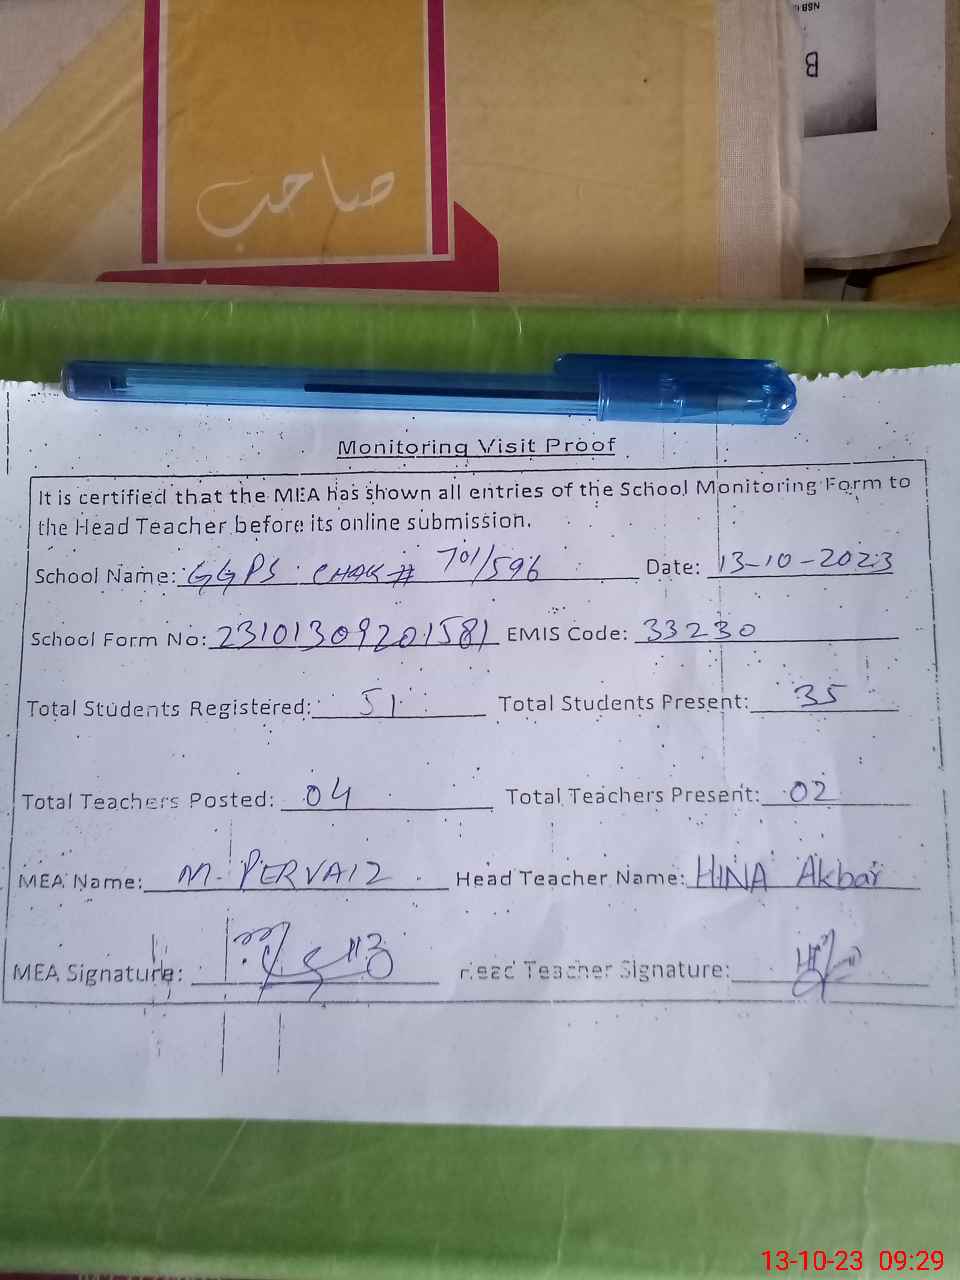 NSB
B
صاحب
Monitoring Visit Proof
It is certified that the MEA has shown all entries of the School Monitoring Form to
the Head Teacher before its online submission.
School Name: GGPS CHAK # 701/596 Date: 13-10-2023
School Form No: 23101309201581 EMIS Code: 33230
Total Students Registered: 51 Total Students Present: 35
Total Teachers Posted: 04 Total Teachers Present: 02
MEA Name: M. PERVAIZ Head Teacher Name: HINA Akbar
MEA Signature: Head Teacher Signature:
13-10-23 09:29